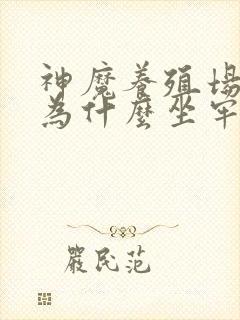 神魔養殖場
為什麼坐牢
嚴民范